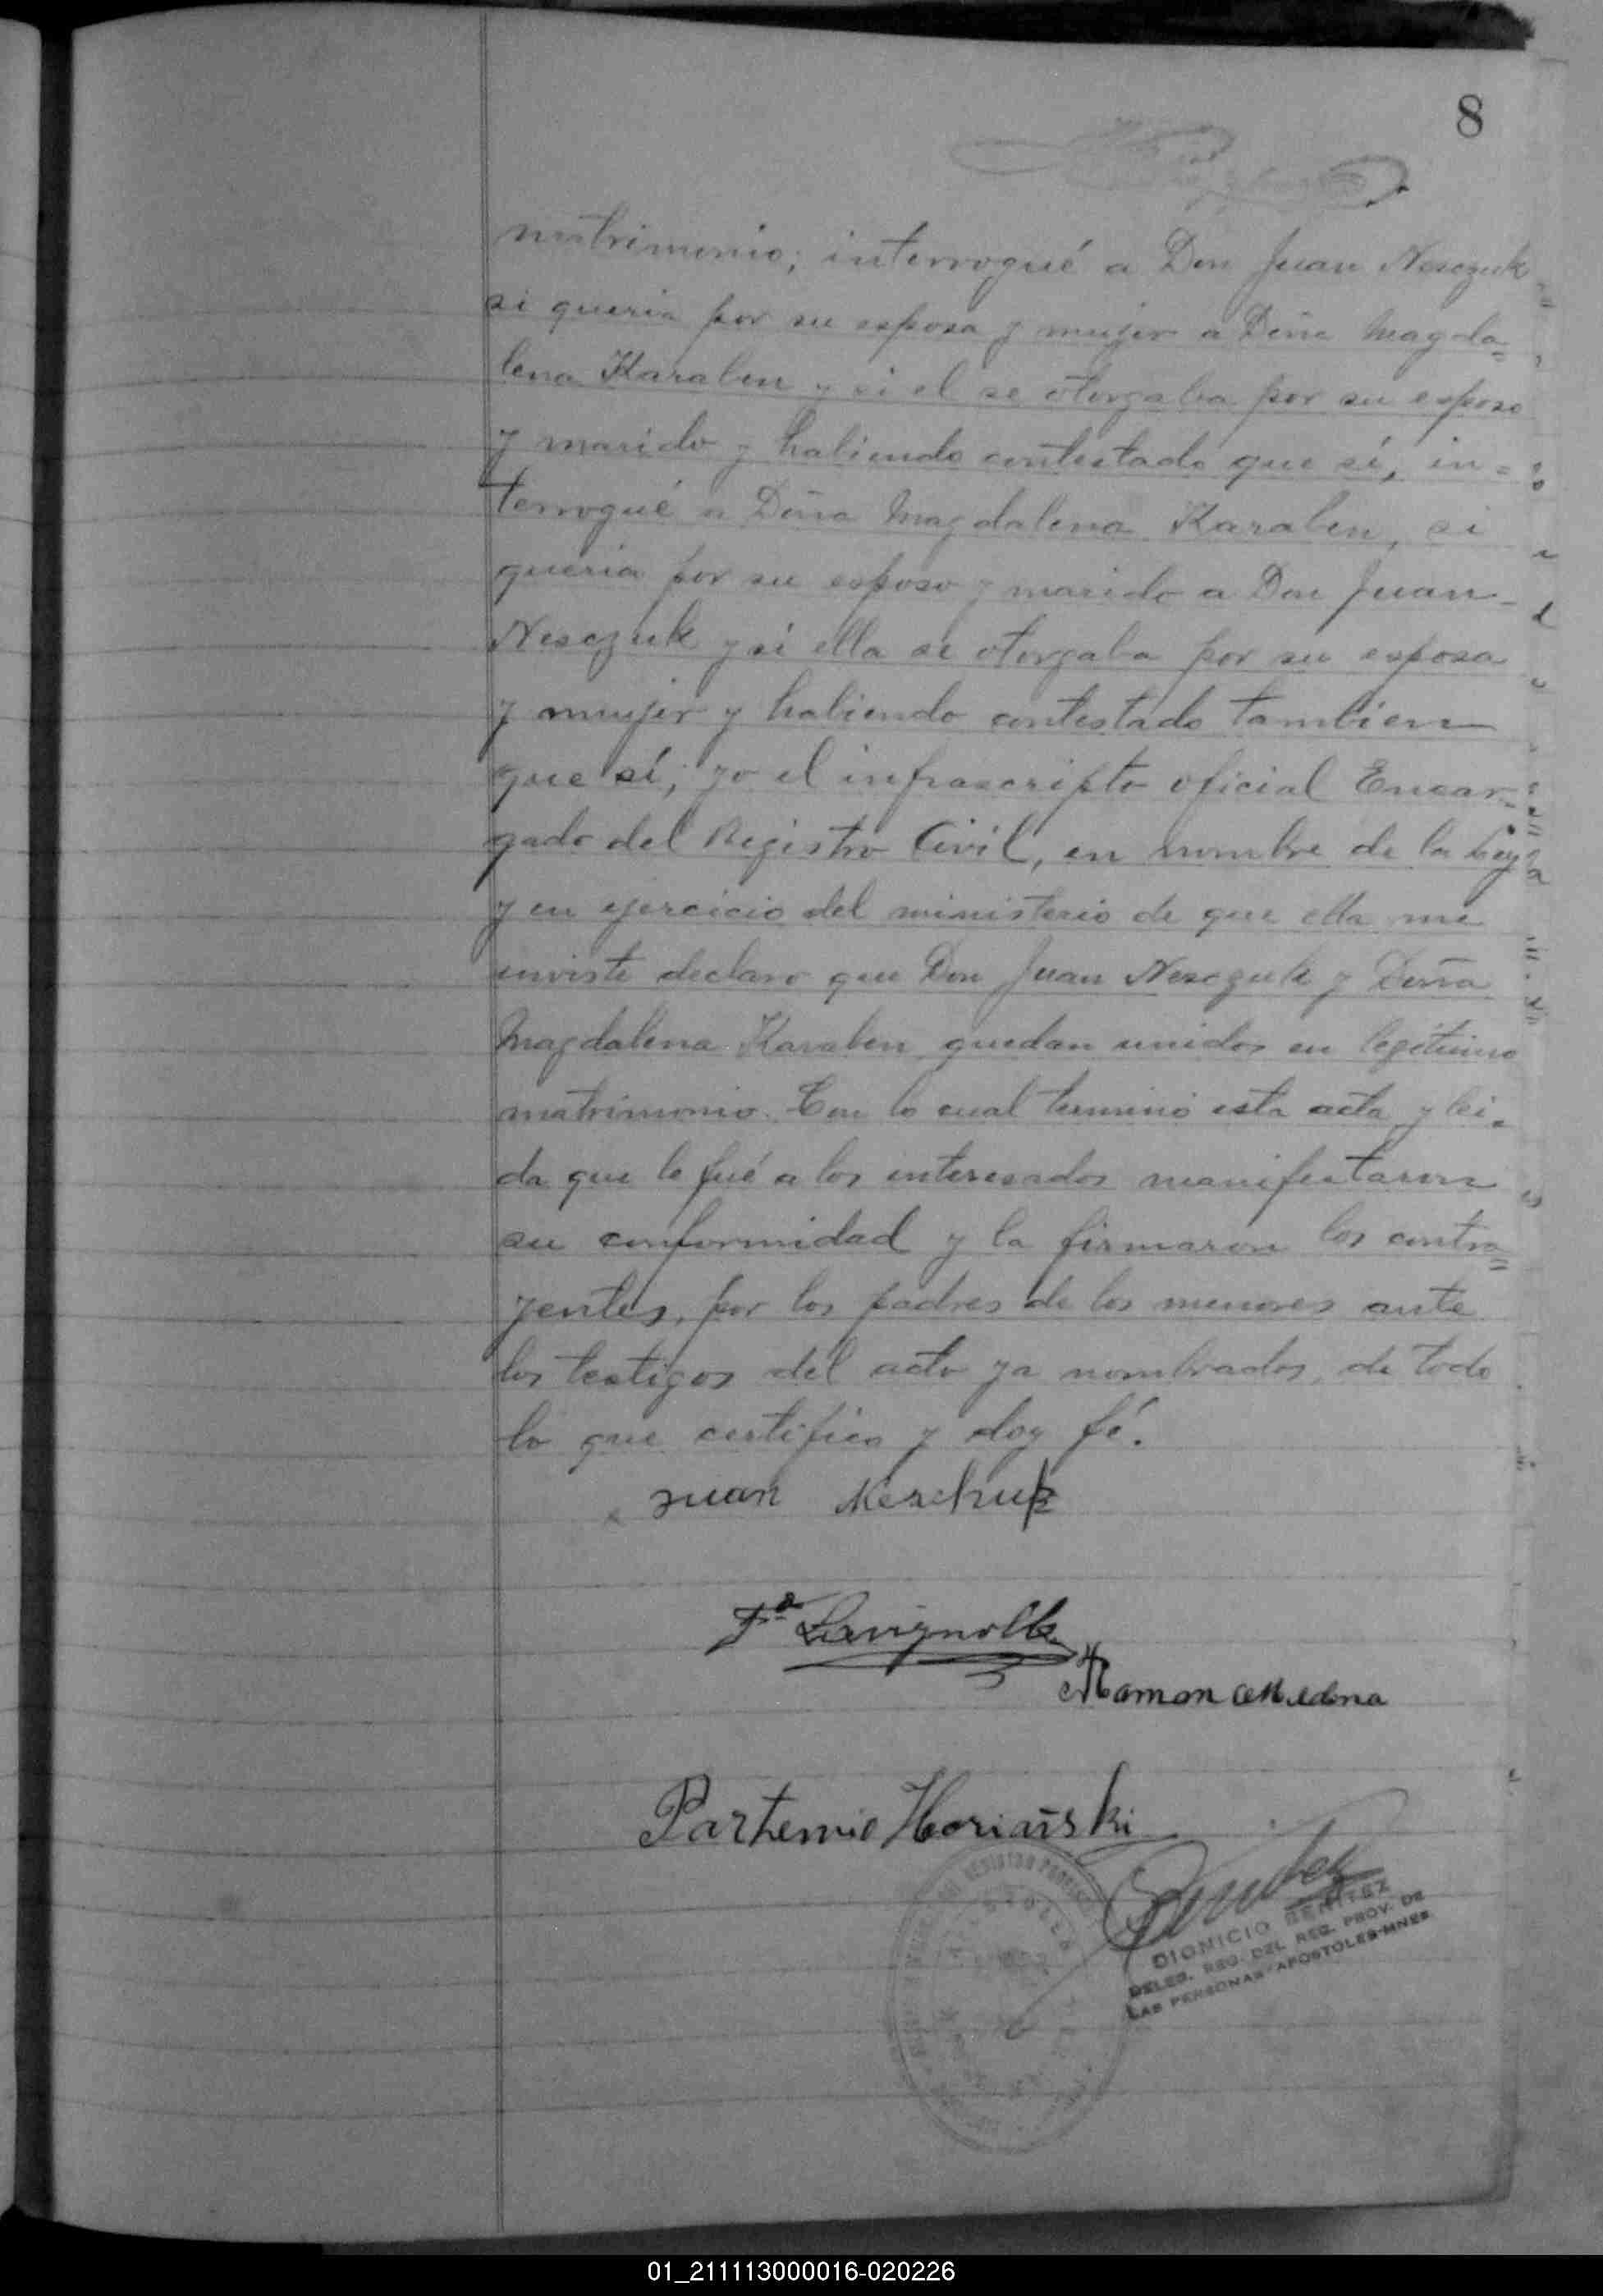 8
matrimonio; interrogué a Don Juan Nesczuk
si queria por su esposa y mujer a Doña Magda=
lena Karaben y si el se otorgaba por su esposo
y marido y habiendo contestado que sí, in=
terrogué a Doña Magdalena Karaben, si
queria por su esposo y marido a Don Juan
Nesczuk y si ella se otorgaba por su esposa
y mujer y habiendo contestado tambien
que sí; yo el infrascripto oficial Encar=
gado del Registro Civil, en nombre de la Ley
y en ejercicio del ministerio de que ella me
inviste declaro que Don Juan Nesczuk y Doña
Magdalena Karaben quedan unidos en legítimo
matrimonio. Con lo cual terminó esta acta y lei=
da que le fué a los interesados manifestaron
su conformidad y la firmaron los contra=
yentes, por los padres de los menores ante
los testigos del acto ya nombrados, de todo
lo que certifico y doy fé.
Juan Neschuk
Fº Lavignolle
Ramon Medina
Partemio Horiañski
DIONICIO BENITEZ
DELEG. REG. DEL REG. PROV. DE
LAS PERSONAS APOSTOLES-MNES
01_211113000016-020226